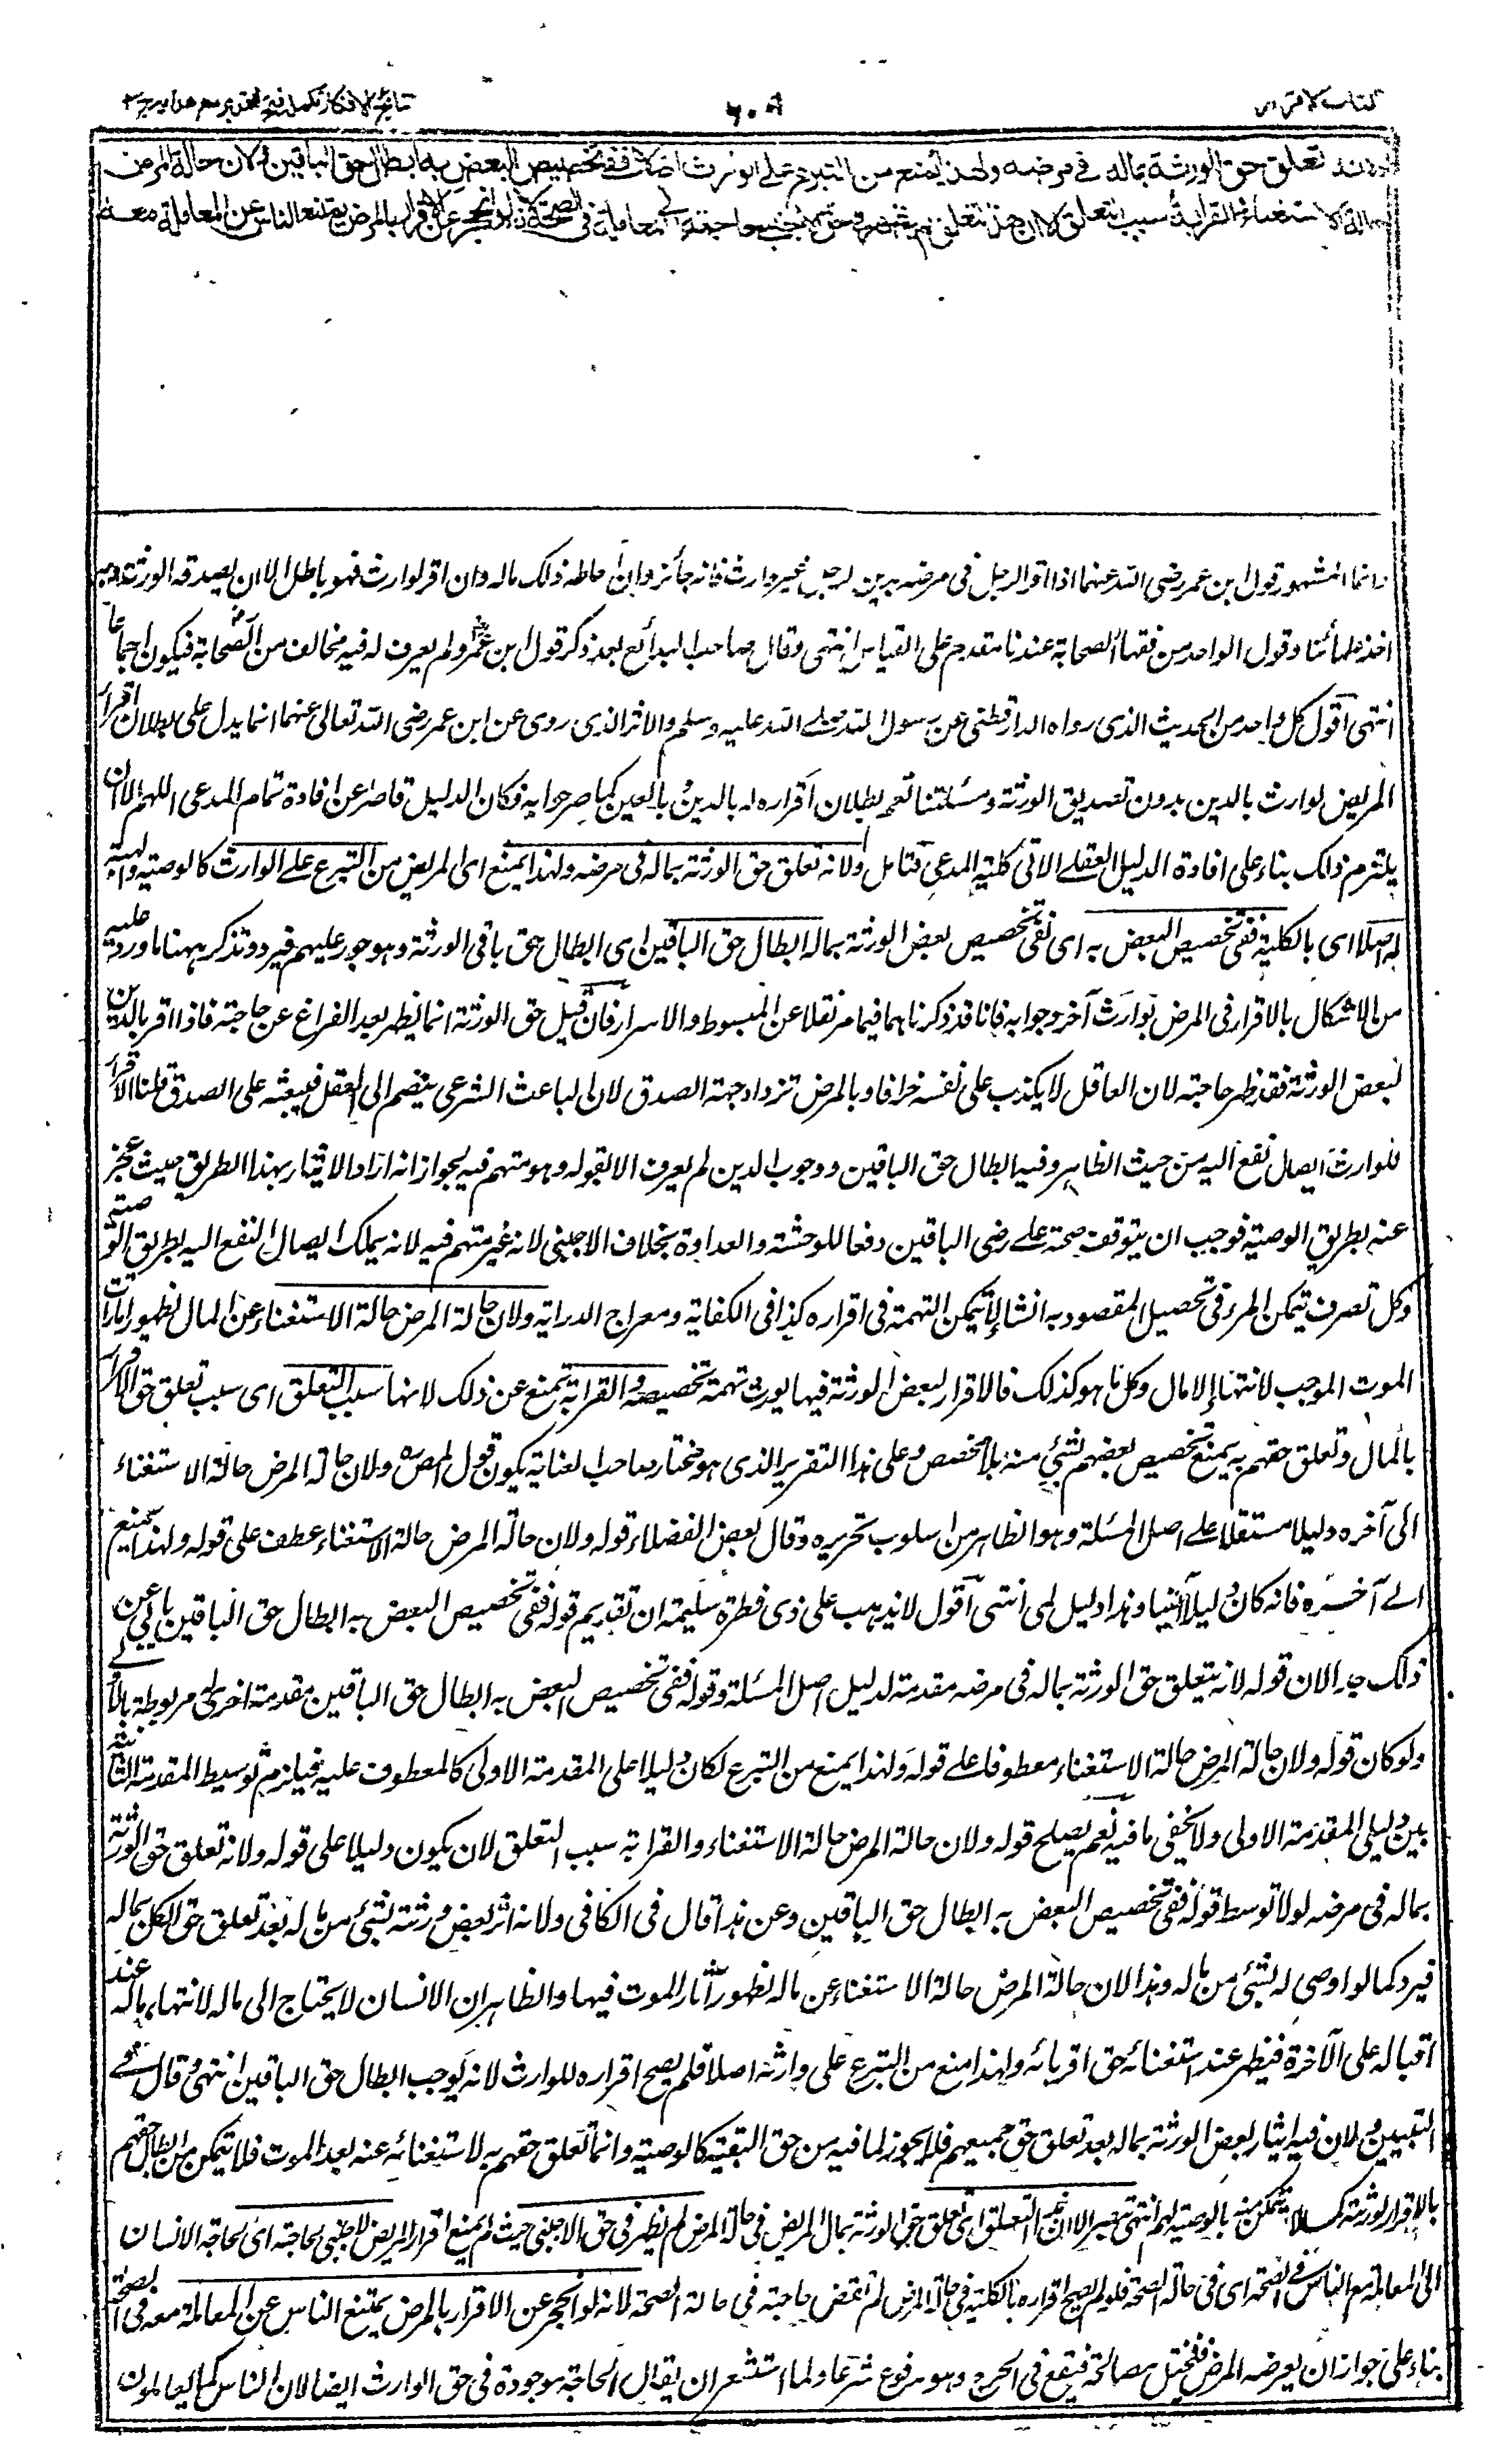 كتاب الاقرار
٦٠٨
نتائج الافكار تكملة فتح القدير مع هداية ج ٣
تعلق حق الورثة بماله في مرضه ولهذا يمنع من التبرع على الوارث اصلا ففي تخصيص البعض به ابطال حق الباقين ولان حالة المرض
حالة الاستغناء والقرابة سبب التعلق الا ان هذا التعلق لم يظهر في حق الاجنبي لحاجته الى المعاملة في الصحة لانه لو انحجر عن الاقرار بالمرض يمتنع الناس عن المعاملة معه
وانما المشهور قول ابن عمر رضى الله عنهما اذا اقر الرجل فى مرضه بدين لرجل غير وارث فانه جائز وان احاط ذلك بماله وان اقر لوارث فهو باطل الا ان يصدقه الورثة وبه
اخذ علمائنا وقول الواحد من فقهاء الصحابة عندنا مقدم على القياس انتهى وقال صاحب البدائع بعد ذكر قول ابن عمر ولم يعرف له فيه مخالف من الصحابة فيكون اجماعا
انتهى اقول كل واحد من الحديث الذى رواه الدارقطنى عن رسول الله صلى الله عليه وسلم والاثر الذى روى عن ابن عمر رضى الله تعالى عنهما انما يدل على بطلان اقرار
المريض لوارث بالدين بدون تصديق الورثة ومسئلتنا تعم بطلان اقراره له بالدين و بالعين كما صرحوا به فكان الدليل قاصرا عن افادة تمام المدعى اللهم الا ان
يلتزم ذلك بناء على افادة الدليل العقلى الاتى كلية المدعى فتامل ولانه تعلق حق الورثة بماله فى مرضه ولهذا يمنع اى المريض من التبرع على الوارث كالوصية والهبة
له اصلا اى بالكلية ففى تخصيص البعض به اى ففى تخصيص بعض الورثة بماله ابطال حق الباقين اى ابطال حق باقى الورثة وهو جور عليهم فيرد وتذكر ههنا ما ورد عليه
من الاشكال بالاقرار فى المرض بوارث آخر وجوابه فانا قد ذكرناهما فيما مر نقلا عن المبسوط والاسرار فان قيل حق الورثة انما يظهر بعد الفراغ عن حاجته فاذا اقر بالدين
لبعض الورثة فقد ظهر حاجته لان العاقل لا يكذب على نفسه جزافا وبالمرض تزداد جهة الصدق لان الباعث الشرعى ينضم الى العقل فيبعثه على الصدق قلنا الاقرار
للوارث ايصال نفع اليه من حيث الظاهر وفيه ابطال حق الباقين ووجوب الدين لم يعرف الا بقوله وهو متهم فيه لجواز انه اراد الايثار بهذا الطريق حيث عجز
عنه بطريق الوصية فوجب ان يتوقف صحته على رضى الباقين دفعا للوحشة والعداوة بخلاف الاجنبى لانه غير متهم فيه لانه يملك ايصال النفع اليه بطريق الوصية
وكل تصرف يتمكن المرء فى تحصيل المقصود به انشاء لا يتمكن التهمة فى اقراره كذا فى الكفاية ومعراج الدراية ولان حالة المرض حالة الاستغناء عن المال لظهور امارات
الموت الموجب لانتهاء الامال وكل ما هو كذلك فالاقرار لبعض الورثة فيها يورث تهمة تخصيصه والقرابة تمنع عن ذلك لانها سبب التعلق اى سبب تعلق حق الاقرباء
بالمال وتعلق حقهم به يمنع تخصيص بعضهم بشئ منه بلا مخصص وعلى هذا التقرير الذى هو مختار صاحب العناية يكون قول المص ره ولان حالة المرض حالة الاستغناء
الى آخره دليلا مستقلا على اصل المسئلة وهو الظاهر من اسلوب تحريره وقال بعض الفضلاء قوله ولان حالة المرض حالة الاستغناء عطف على قوله ولهذا يمنع
الى آخره فانه كان دليلا انيا وهذا دليل لمى انتهى اقول لا يذهب على ذى فطرة سليمة ان تقديم قوله ففى تخصيص البعض به ابطال حق الباقين يابى عن
ذلك جدا لان قوله لانه يتعلق حق الورثة بماله فى مرضه مقدمة لدليل اصل المسئلة وقوله ففى تخصيص البعض به ابطال حق الباقين مقدمة اخرى له مربوطة بالاولى
ولو كان قوله ولان حالة المرض حالة الاستغناء معطوفا على قوله ولهذا يمنع من التبرع لكان دليلا على المقدمة الاولى كالمعطوف عليه فيلزم توسيط المقدمة الثانية
بين دليلى المقدمة الاولى ولا يخفى ما فيه نعم يصلح قوله ولان حالة المرض حالة الاستغناء والقرابة سبب التعلق لان يكون دليلا على قوله ولانه تعلق حق الورثة
بماله فى مرضه لولا توسط قوله ففى تخصيص البعض به ابطال حق الباقين وعن هذا قال فى الكافى ولانه اثر بعض ورثته بشئ من ماله بعد تعلق حق الكل بماله
فيرد كما لو اوصى له بشئ من ماله وهذا لان حالة المرض حالة الاستغناء عن ماله لظهور آثار الموت فيها والظاهر ان الانسان لا يحتاج الى ماله لانتهاء ماله عند
اقباله على الآخرة فيظهر عند استغنائه حق اقربائه ولهذا منع من التبرع على وارثه اصلا فلم يصح اقراره للوارث لانه يوجب ابطال حق الباقين انتهى وقال فى
التبيين ولان فيه ايثار بعض الورثة بماله بعد تعلق حق جميعهم فلا يجوز لما فيه من حق البقية كالوصية وانما تعلق حقهم به لاستغنائه عنه بعد الموت فلا يتمكن من ابطال حقهم
بالاقرار لورثة كما لا يتمكن منه بالوصية لهم انتهى تبصر الا ان هذا التعلق اى تعلق حق الورثة بمال المريض فى حالة المرض لم يظهر فى حق الاجنبى حيث لم يمنع اقرار المريض لاجنبى لحاجته اى لحاجة الانسان
الى المعاملة مع الناس فى الصحة اى فى حالة الصحة فلو لم يصح اقراره بالكلية فى حالة المرض لم تقض حاجته فى حالة الصحة لانه لو انحجر عن الاقرار بالمرض يمتنع الناس عن المعاملة معه فى الصحة
بناء على جواز ان يعرضه المرض فيختل مصالحه فيقع فى الحرج وهو مدفوع شرعا ولما استشعر ان يقال الحاجة موجودة فى حق الوارث ايضا لان الناس كما يعاملون